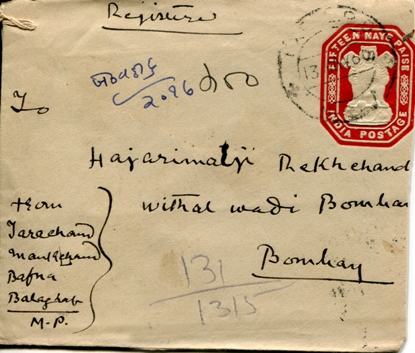 Registered
FIFTEEN NAYE PAISE
INDIA POSTAGE
2096
To
Hajarimalji Rekhchand
withal wadi Bombay
Bombay
From
Tarachand
Bafna
Balaghat
M-P.
131
1315